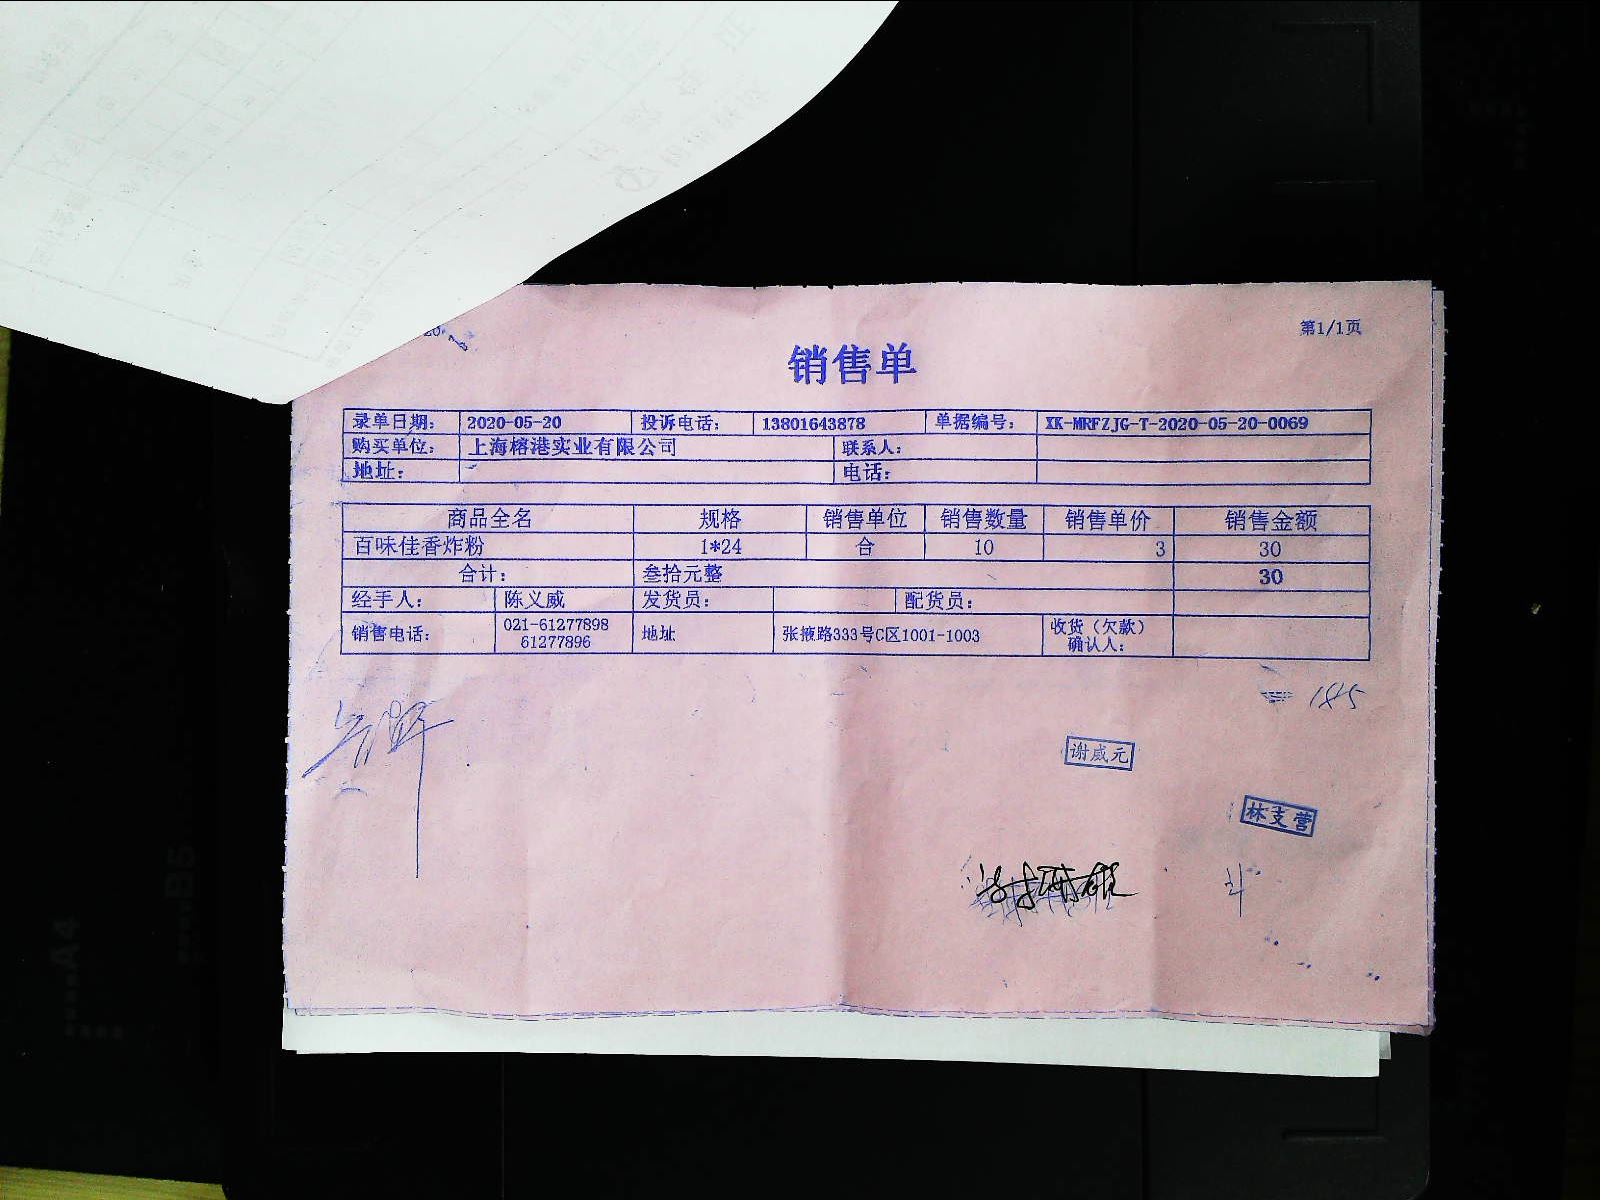 第1/1页
销售单
录单日期: 2020-05-20 投诉电话: 13801643878 单据编号: XK-MRFZJG-T-2020-05-20-0069
购买单位: 上海榕港实业有限公司 联系人:
地址: 电话:
商品全名 规格 销售单位 销售数量 销售单价 销售金额
百味佳香炸粉 1*24 合 10 3 30
合计: 叁拾元整 30
经手人: 陈义威 发货员: 配货员:
销售电话: 021-61277898 61277896 地址 张掖路333号C区1001-1003 收货(欠款)确认人:
185
谢威元
林支营
A4
B5